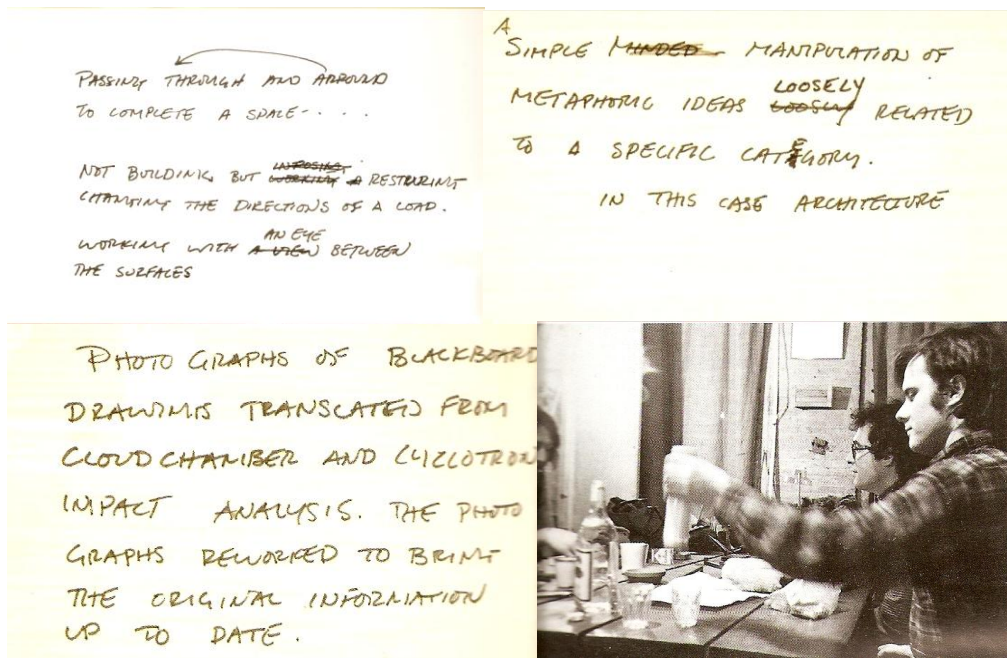 PASSING THROUGH AND ARROUND
TO COMPLETE A SPACE-. . . .
NOT BUILDING BUT RESTURING
CHANGING THE DIRECTIONS OF A LOAD.
AN EYE
WORKING WITH A VIEW BETWEEN
THE SURFACES
A
SIMPLE MINDED MANIPULATION OF
LOOSELY
METAPHORIC IDEAS LOOSLY RELATED
TO A SPECIFIC CATEGORY.
IN THIS CASE ARCHITECTURE
PHOTO GRAPHS OF BLACKBOARD
DRAWINGS TRANSLATED FROM
CLOUDCHAMBER AND CYZCLOTRON
IMPACT ANALYSIS. THE PHOTO
GRAPHS REWORKED TO BRING
THE ORIGINAL INFORMATION
UP TO DATE.